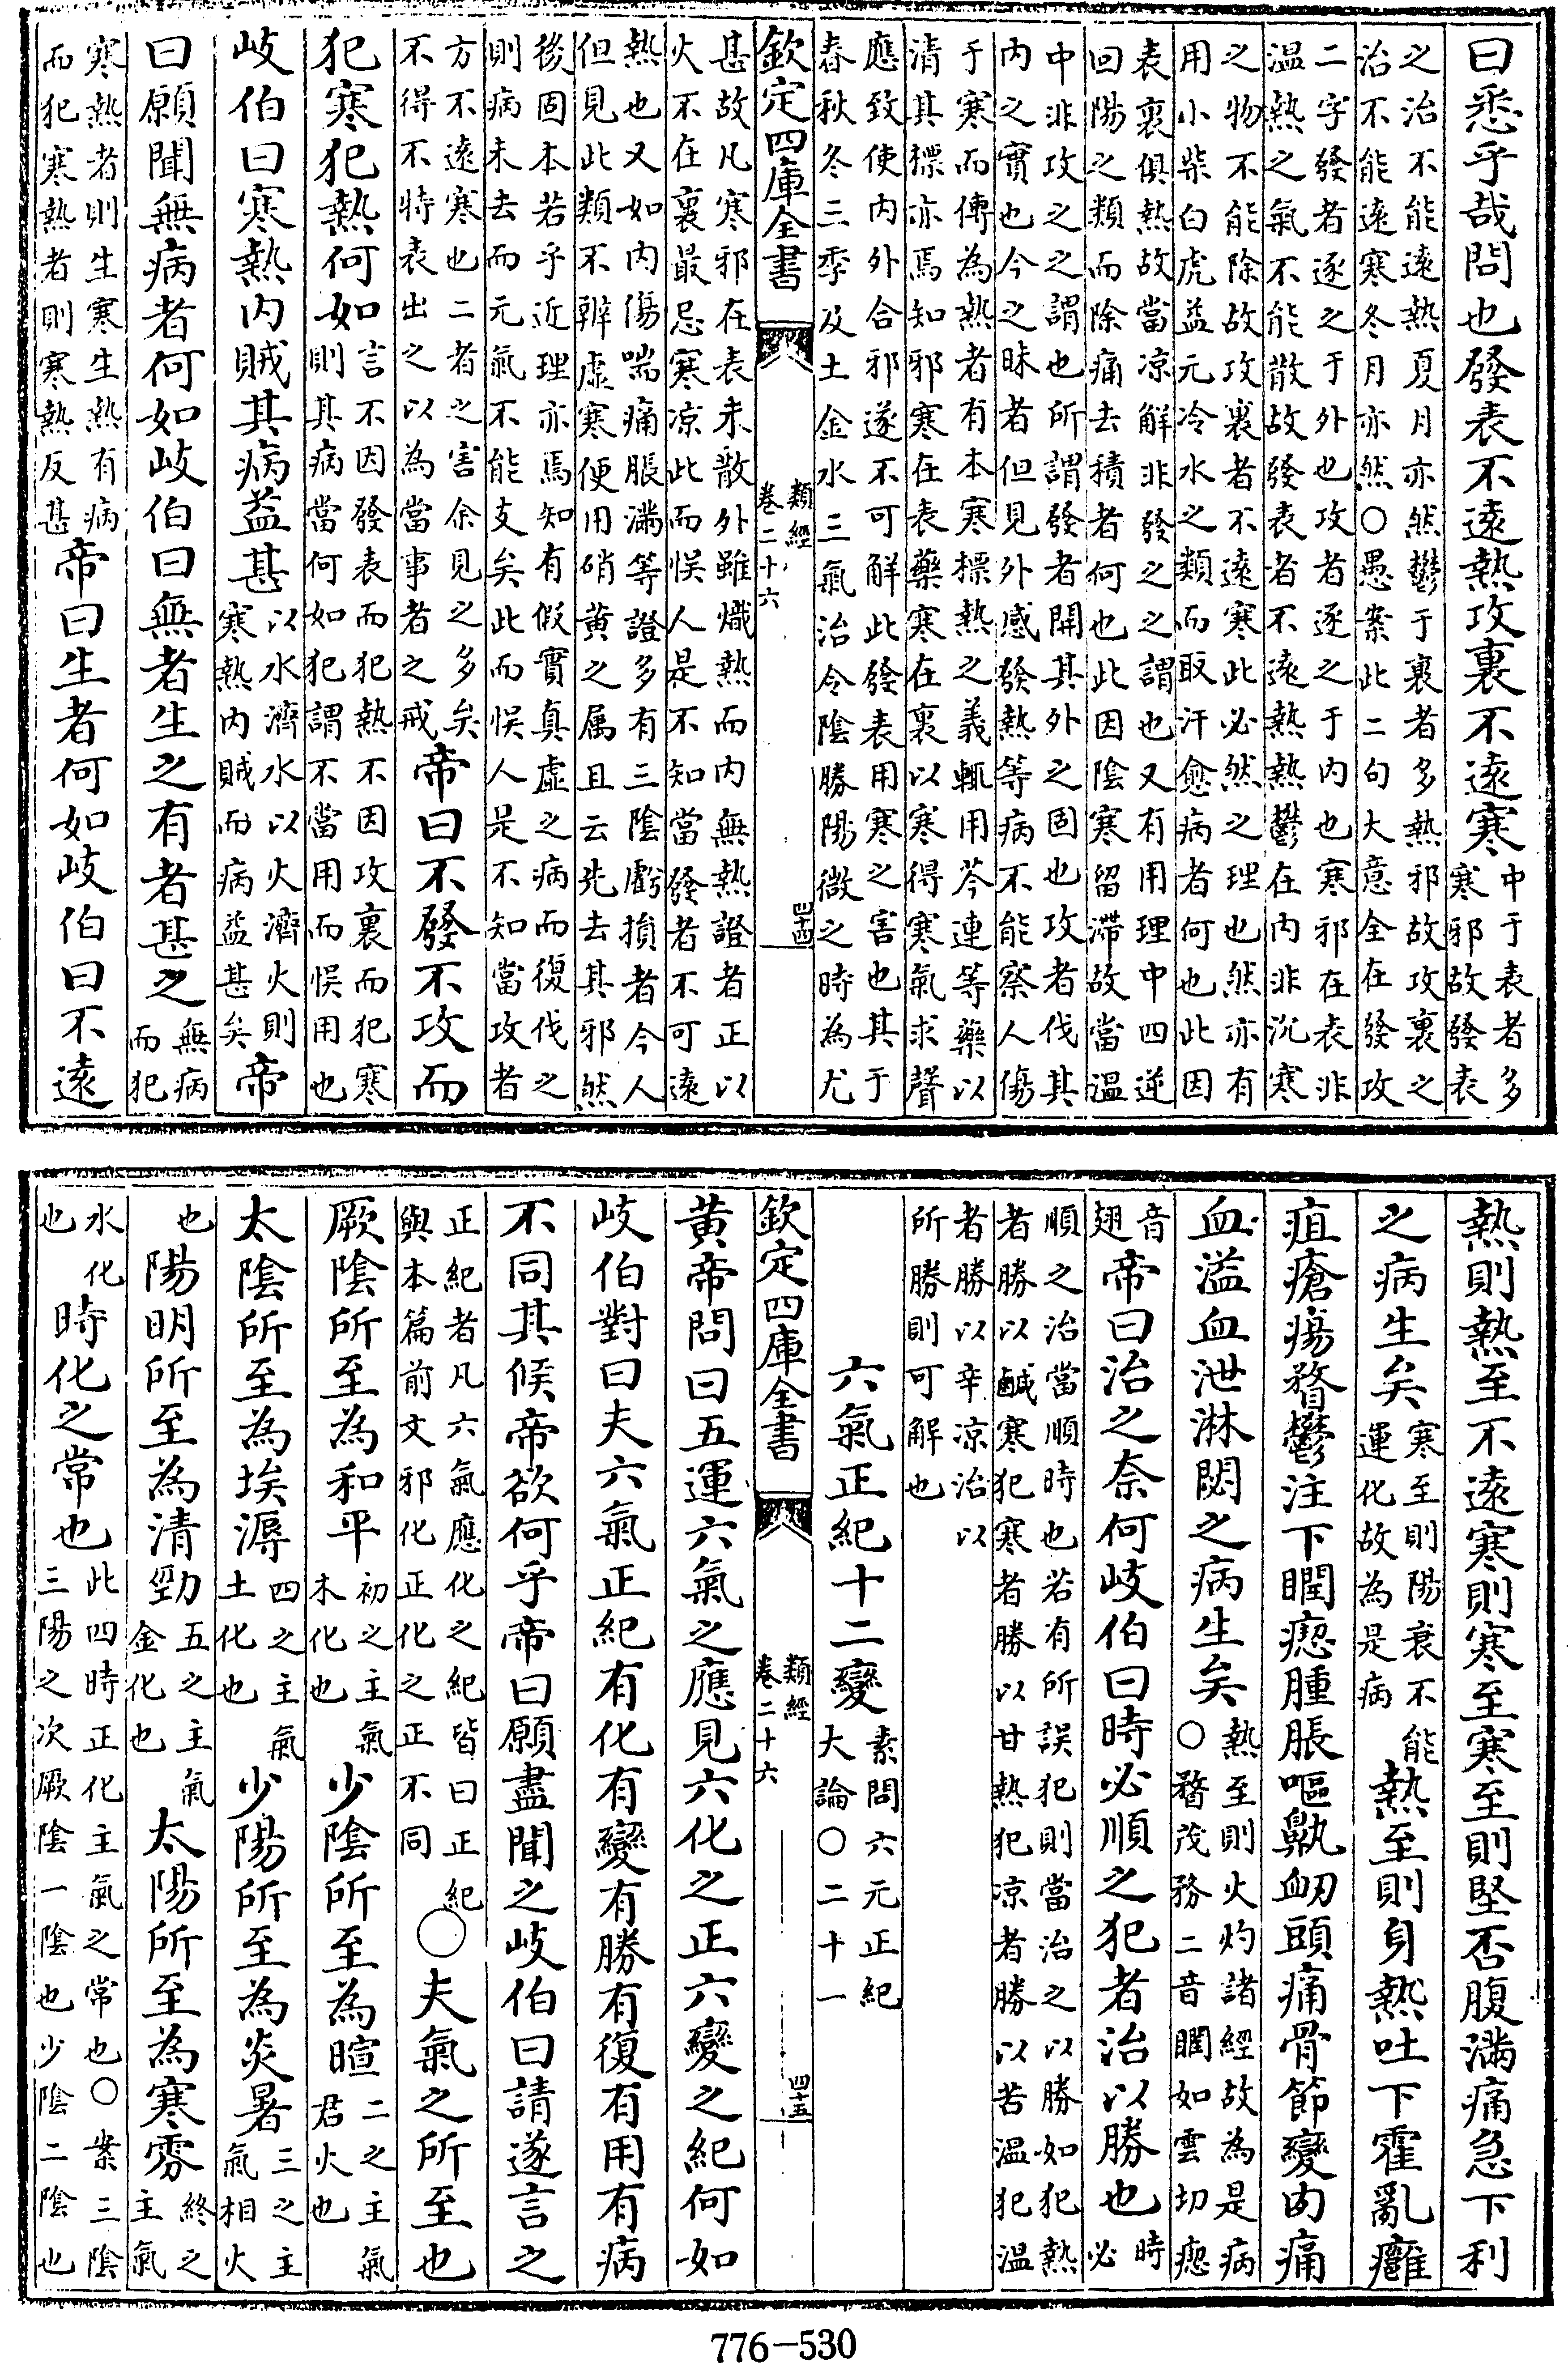 曰悉乎哉問也發表不遠熱攻裏不遠寒
中于表者多
寒邪故發表
之治不能遠熱夏月亦然鬱于裏者多熱邪故攻裏之
治不能遠寒冬月亦然○愚案此二句大意全在發攻
二字發者逐之于外也攻者逐之于内也寒邪在表非
温熱之氣不能散故發表者不遠熱熱鬱在内非沉寒
之物不能除故攻裏者不遠寒此必然之理也然亦有
用小柴白虎益元冷水之類而取汗愈病者何也此因
表裏俱熱故當凉解非發之之謂也又有用理中四逆
回陽之類而除痛去積者何也此因陰寒留滯故當温
中非攻之之謂也所謂發者開其外之固也攻者伐其
内之實也今之昧者但見外感發熱等病不能察人傷
于寒而傳為熱者有本寒標熱之義輒用芩連等藥以
清其標亦焉知邪寒在表藥寒在裏以寒得寒氣求聲
應致使内外合邪遂不可解此發表用寒之害也其于
春秋冬三季及土金水三氣治令陰勝陽微之時為尤
欽定四庫全書
類經
卷二十六
四十四
甚故凡寒邪在表未散外雖熾熱而内無熱證者正以
火不在裏最忌寒凉此而悞人是不知當發者不可遠
熱也又如内傷喘痛脹滿等證多有三陰虧損者今人
但見此類不辨虛寒便用硝黄之属且云先去其邪然
後固本若乎近理亦焉知有假實真虛之病而復伐之
則病未去而元氣不能支矣此而悞人是不知當攻者
方不遠寒也二者之害余見之多矣
不得不特表出之以為當事者之戒
帝曰不發不攻而
犯寒犯熱何如
言不因發表而犯熱不因攻裏而犯寒
則其病當何如犯謂不當用而悞用也
岐伯曰寒熱内賊其病益甚
以水濟水以火濟火則
寒熱内賊而病益甚矣
帝
曰願聞無病者何如岐伯曰無者生之有者甚之
無病
而犯
寒熱者則生寒生熱有病
而犯寒熱者則寒熱反甚
帝曰生者何如岐伯曰不遠
熱則熱至不遠寒則寒至寒至則堅否腹滿痛急下利
之病生矣
寒至則陽衰不能
運化故為是病
熱至則身熱吐下霍亂癰
疽瘡瘍瞀鬱注下瞤瘛腫脹嘔鼽衄頭痛骨節變肉痛
血溢血泄淋閟之病生矣
熱至則火灼諸經故為是病
○瞀茂務二音瞤如雲切瘛
音
翅
帝曰治之奈何岐伯曰時必順之犯者治以勝也
時
必
順之治當順時也若有所誤犯則當治之以勝如犯熱
者勝以鹹寒犯寒者勝以甘熱犯凉者勝以苦温犯温
者勝以辛凉治以
所勝則可解也
六氣正紀十二變
素問六元正紀
大論○二十一
欽定四庫全書
類經
卷二十六
四十五
黄帝問曰五運六氣之應見六化之正六變之紀何如
岐伯對曰夫六氣正紀有化有變有勝有復有用有病
不同其候帝欲何乎帝曰願盡聞之岐伯曰請遂言之
正紀者凡六氣應化之紀皆曰正紀
與本篇前文邪化正化之正不同
○夫氣之所至也
厥陰所至為和平
初之主氣
木化也
少陰所至為暄
二之主氣
君火也
太陰所至為埃溽
四之主氣
土化也
少陽所至為炎暑
三之主
氣相火
也
陽明所至為清勁
五之主氣
金化也
太陽所至為寒雰
終之
主氣
水化
也
時化之常也
此四時正化主氣之常也○案三陰
三陽之次厥陰一陰也少陰二陰也
776-530